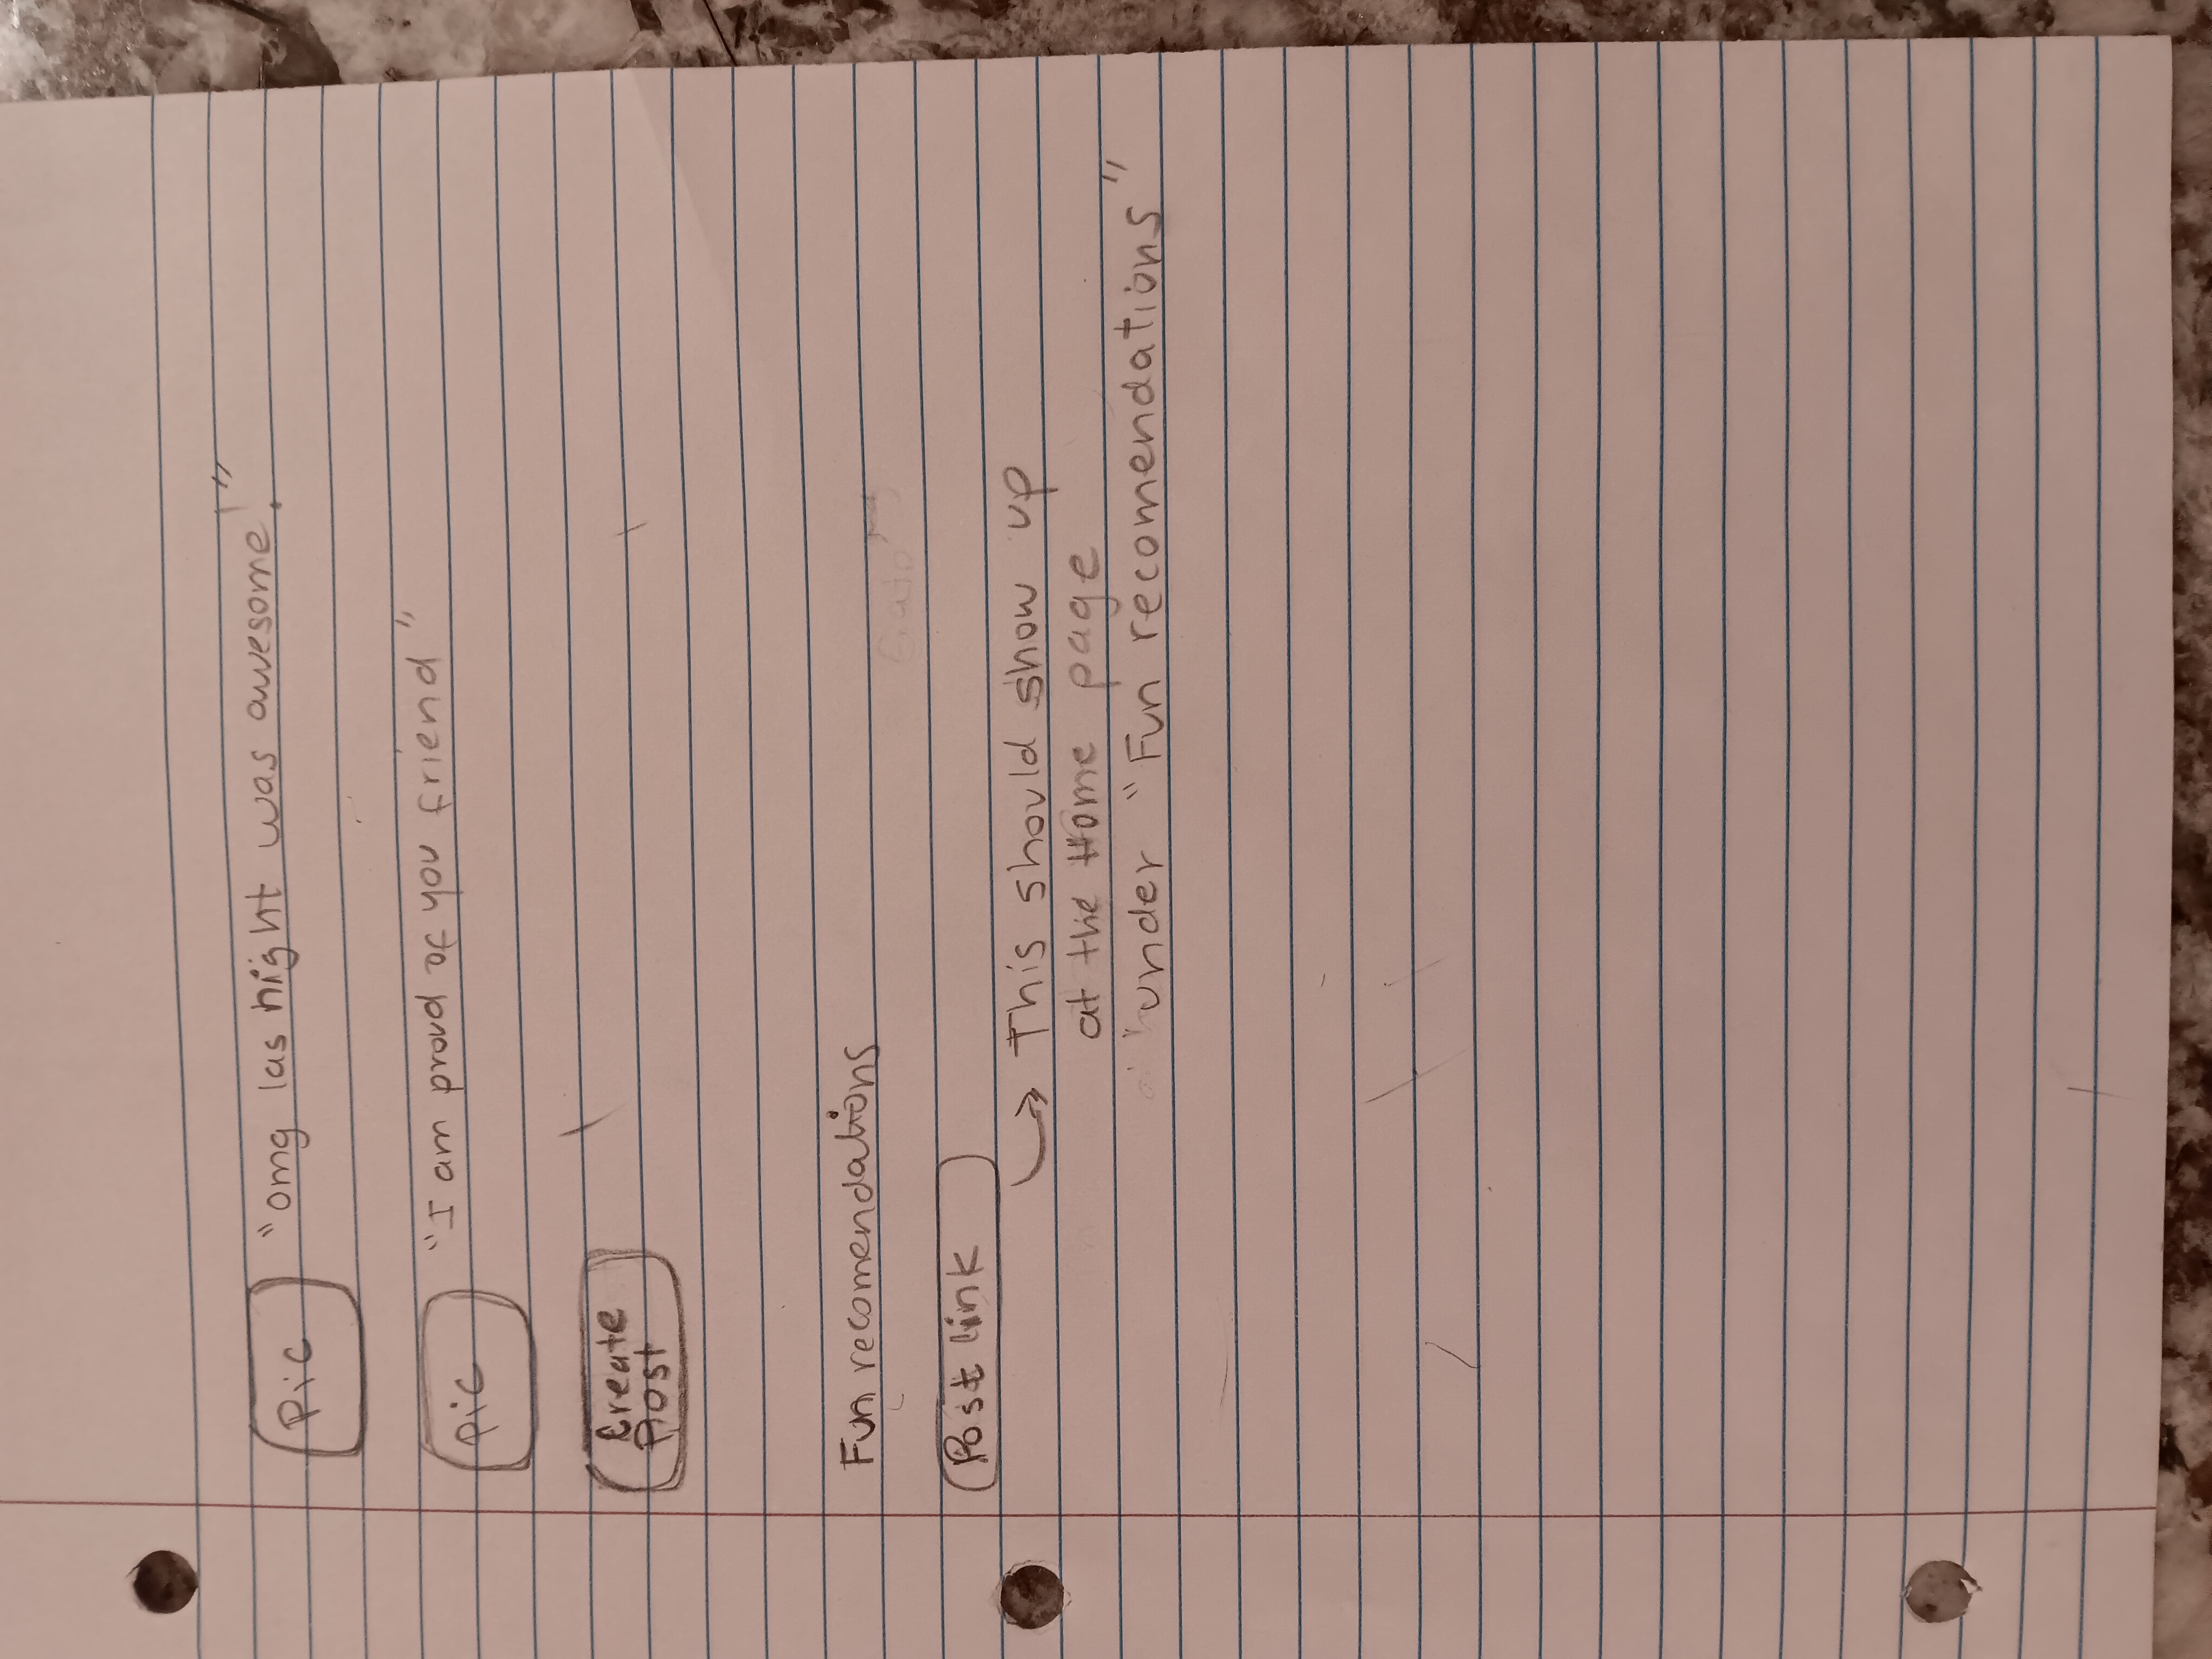 Pic "omg las night was awesome!"
Pic "I am proud of you friend"
Create
Post
Fun recomendations
Post link
This should show up
at the Home page
under "Fun recomendations"